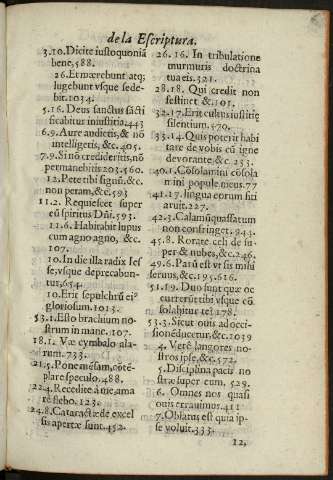 de la Escriptura.
3.10. Dicite iustoquoniã
bene, 588.
26. Et mœrebunt atq;
lugebunt vsque sede-
bit. 1034.
5.16. Deus sanctus sãcti
ficabitur iniustitia. 443
6.9. Aure audietis, & nõ
intelligetis, &c. 405.
7.9. Si nõ credideritis, nõ
permanebitis 203.560.
12. Pete tibi signũ. & c.
non peram, & c. 593
11.2. Requiescet super
eũ spiritus Dñi. 593.
11.6. Habitabit lupus
cum agno agno, & c.
107.
10. In die illa radix Ies
se, vsque deprecabun-
tur, 654.
10. Erit sepulchrũ ei⁹
gloriosum. 1013.
53.1. Esto brachium no-
strum in mane. 107.
18.1. Væ cymbalo ala-
rum. 733.
21.5. Pone mẽsam, cõtẽ-
plare speculo. 488.
22.4. Recedite à me, ama
rè flebo. 123.
24.8. Cataractæ de excel
sis apertæ sunt. 452.
26.16. In tribulatione
murmuris doctrina
tua eis. 321.
28.18. Qui credit non
festinet & c. 101.
32.17. Erit cultus iustitiæ
silentium. 570.
33.14. Quis poterit habi
tare de vobis cũ igne
devorante, & c. 253.
40.1. Cõsolamini cõsola
mini popule meus. 77
41.17. lingua eorum siti
aruit. 227.
42.3. Calamũ quassatum
non confringet. 943.
45.8. Rorate celi de su-
per & nubes, &c. 246.
49.6. Parũ est vt sis mihi
seruus, &c. 195.616.
51.19. Duo sunt quæ oc
currerũt tibi vsque cõ
solabitur te? 178.
53.3. Sicut ouis ad occi-
sionẽ ducetur, &c. 1039
4. Verè langores no-
stros ipse, &c. 572.
5. Disciplina pacis no
stræ super eum, 529.
6. Omnes nos quasi
ouis errauimus. 411
7. Oblatus est quia ip-
se voluit. 333.
12.